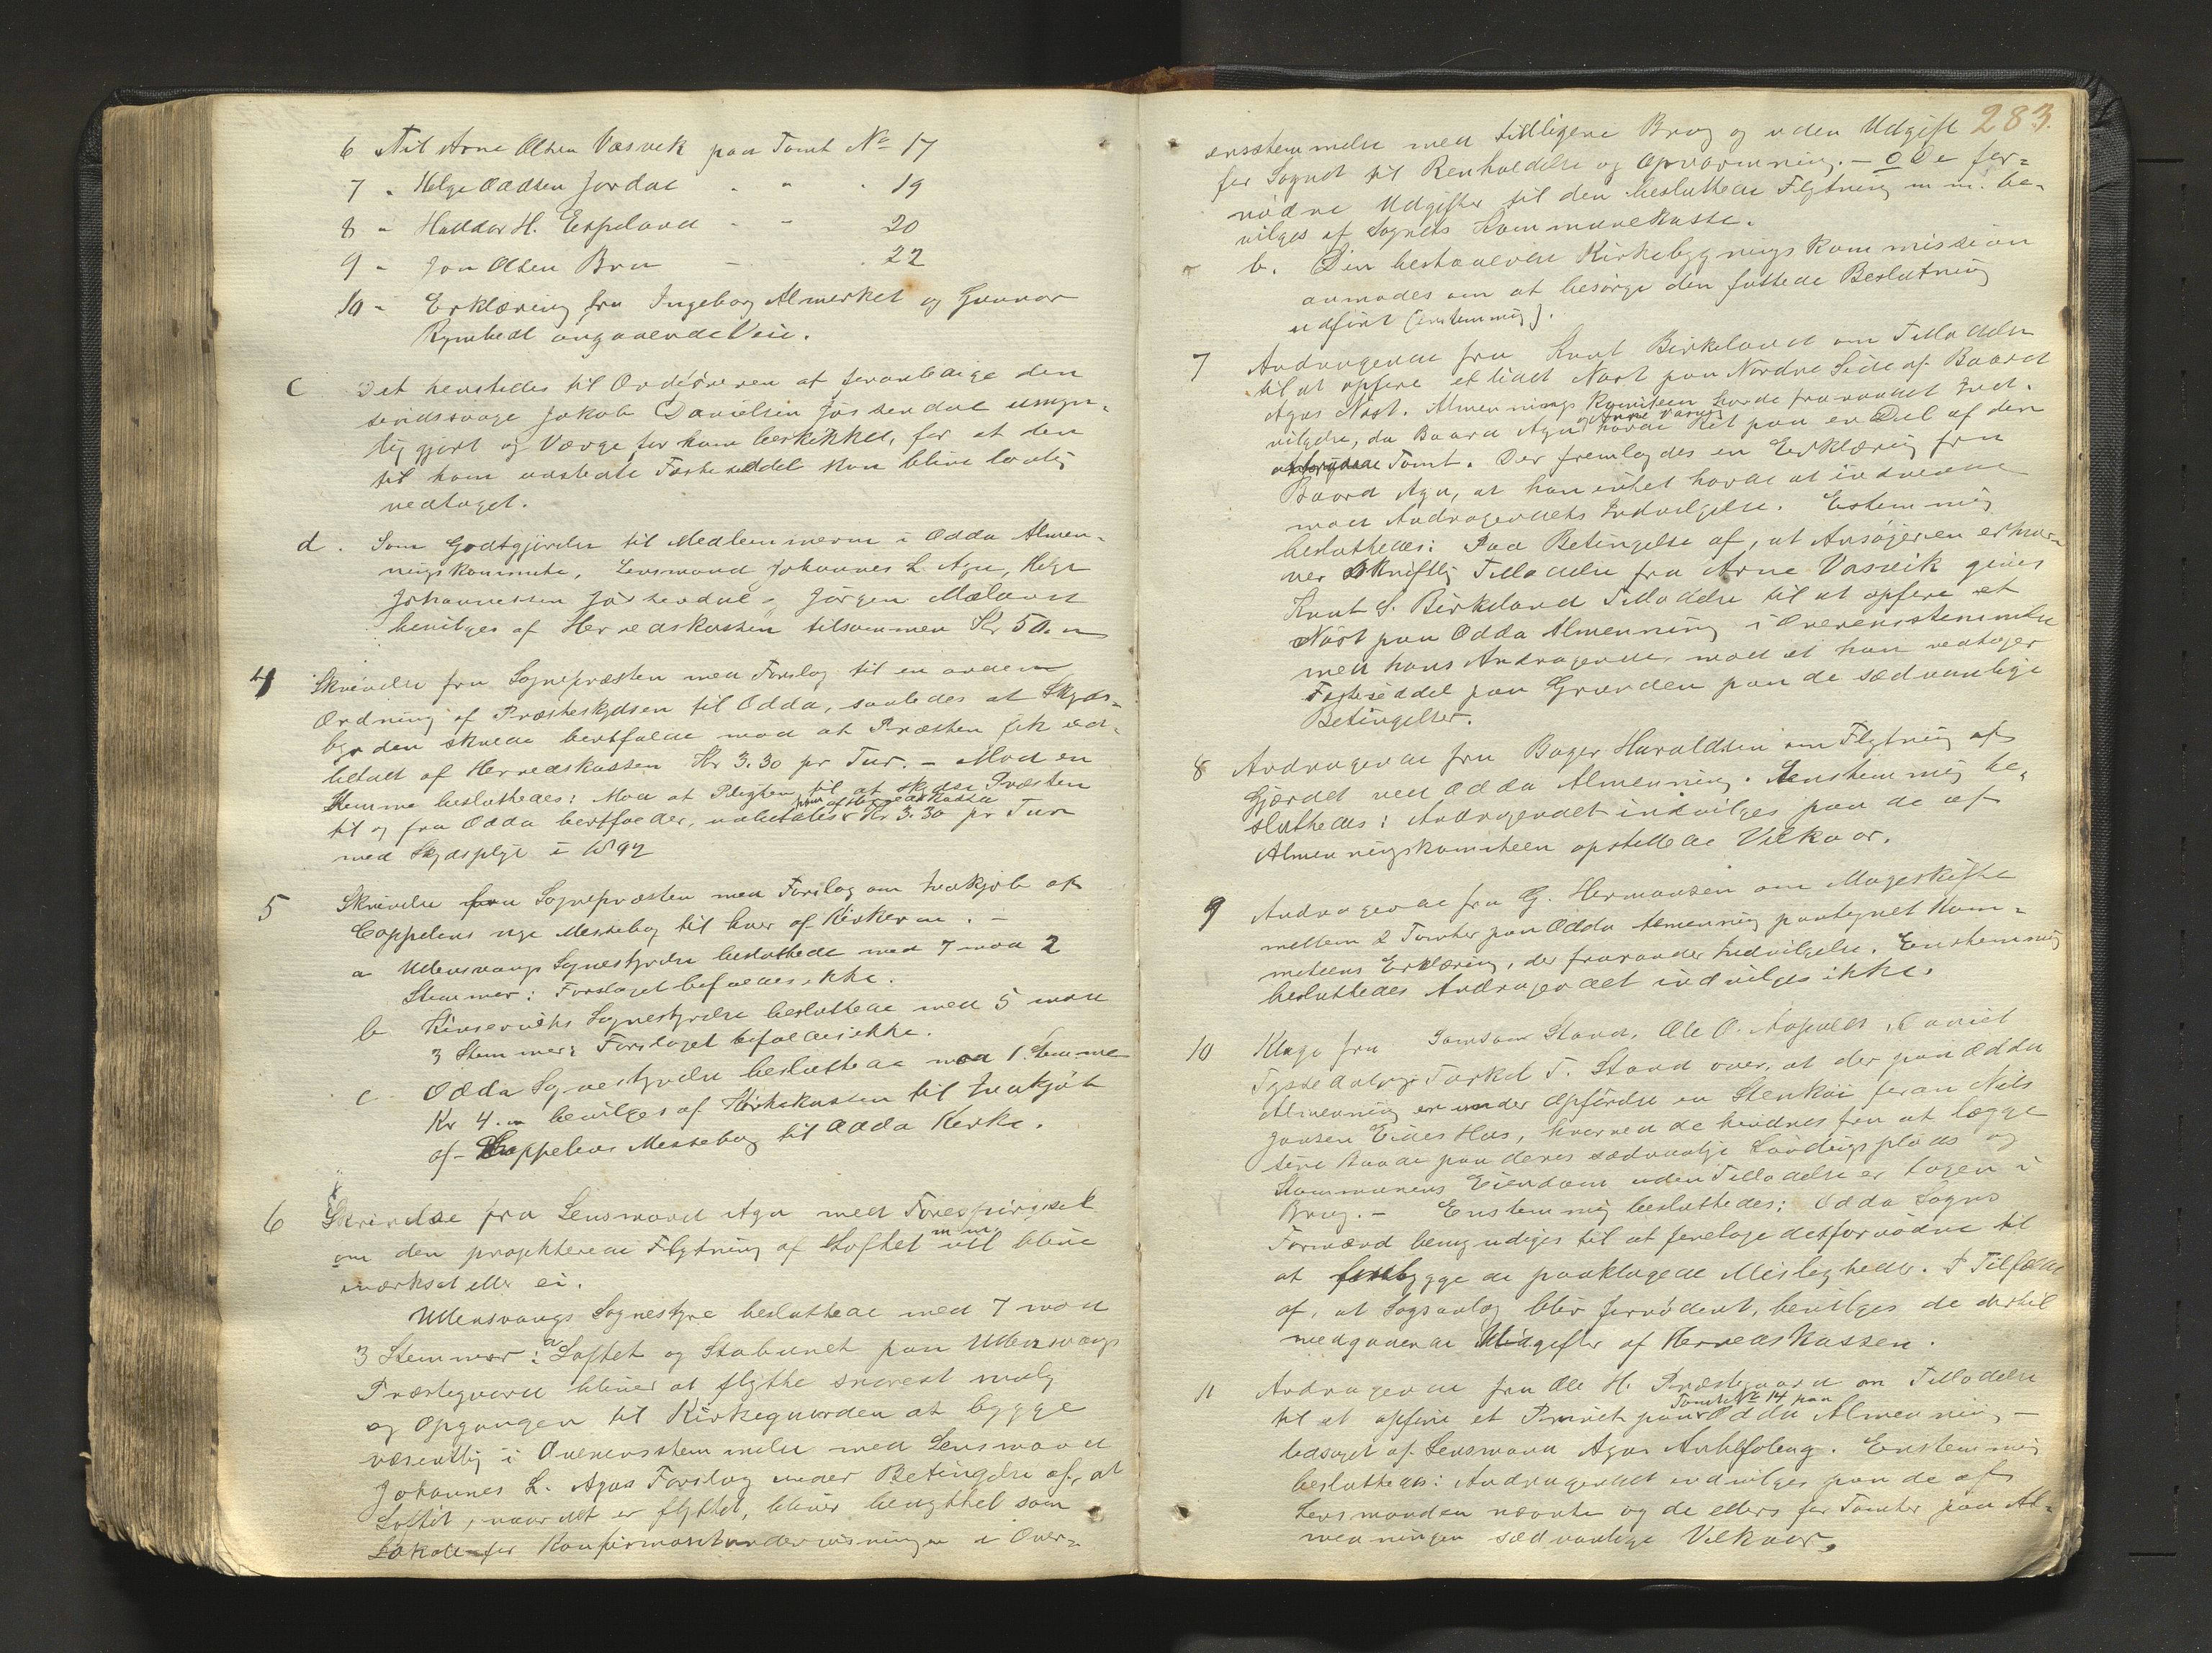 6 Til Arne Olsen Vasvik paa Tomt No 17
7 " Helge Oddsen Jordal " " " 19
8 " Haldor H. Espeland " " 20
9 " Jon Olsen Bru " " 22
10 " Erklæring fra Ingeborg Almerket og Gunnar
angaaende Veie.
c Det henstilles til Ordføreren at foranledige den
sindssvage Jakob Danielsen Jøsendal umyn-
diggjort og Værge for ham beskikket, for at den
til ham udstedte Festeseddel kan blive lovlig
vedtaget.
d. Som Godtgjørelse til Medlemmerne i Odda Almen-
ningskommite, Lensmand Johannes L. Aga, Helge
Johannessen Jøsendal, Jørgen Mæland
bevilges af Herredskassen tilsammen Kr 50.00
4 Skrivelse fra Sognepræsten med Forslag til en anden
Ordning af Præsteskydsen til Odda, saaledes at Skyds-
byrden skulde bortfalde mod at Præsten fik ud-
betalt af Herredskassen Kr 3.30 pr Tur. – Mod en
Stemme besluttedes: Mod at Pligten til at skydse Præsten
til og fra Odda bortfalder, udbetales ham af Herredskassen Kr 3.30 pr Tur
med Skydspligt i 1892
5 Skrivelse fra Sognepræsten med Forslag om Indkjøb af
Cappelens nye Messebog til hver af Kirkerne. –
a Ullensvangs Sognestyrelse besluttede med 7 mod 2
Stemmer: Forslaget bifaldes ikke.
b Kinserviks Sognestyrelse besluttede med 5 mod
3 Stemmer: Forslaget bifaldes ikke.
c Odda Sognestyrelse besluttede mod 1 Stemme
Kr 4.00 bevilges af Kirkekassen til Indkjøb
af Cappelens Messebog til Odda Kirke.
6 Skrivelse fra Lensmand Aga med Forespørgsel
om den projekterede Flytning af Loftet m m vil blive
iværksat eller ei.
Ullensvangs Sognestyre besluttede med 7 mod
3 Stemmer: a Loftet og Staburet paa Ullensvangs
Præstegaard bliver at flytte snarest mulig
og Opgangen til Kirkegaarden at bygge
væsentlig i Overensstemmelse med Lensmand
Johannes L. Agas Forslag under Betingelse af, at
Loftet, naar det er flyttet, bliver benyttet som
Lokale for Konfirmantundervisningen i Over-
283.
ensstemmelse med tidligere Brug og uden Udgift
for Sognet til Renholdelse og Opvarmning. – De for-
nødne Udgifter til den besluttede Flytning m m. be-
vilges af Sognets Kommunekasse.
b. Den bestaaende Kirkebygningskommission
anmodes om at besørge den fattede Beslutning
udført (enstemmig).
7 Andragende fra Knut Birkeland om Tilladelse
til at opføre et lidet Nøst paa Nordre Side af Baard
Agas Nøst. Almenningskomiteen havde fraraadet Ind-
vilgelse, da Baard Aga og Arne Vasvig havde Ret paa en Del af den
Tomt. Der fremlagdes en Erklæring fra
Baard Aga, at han intet havde at indvende
mod Andragendets Indvilgelse. Enstemmig
besluttedes: Paa Betingelse af, at Ansøgeren erhver-
ver skriftlig Tilladelse fra Arne Vasvik gives
Knut S. Birkeland Tilladelse til at opføre et
Nøst paa Odda Almenning i Overensstemmelse
med hans Andragende, mod at han vedtager
Festeseddel paa Grunden paa de sædvanlige
Betingelser.
8 Andragende fra Bager Haraldsen om Flytning af
Gjærdet ved Odda Almenning. Enstemmig be-
sluttedes: Andragendet indvilges paa de af
Almenningskomiteen opstillede Vilkaar.
9 Andragende fra G. Hermansen om Mageskifte
mellem 2 Tomter paa Odda Almenning paategnet Kom-
miteens Erklæring, der fraraader Indvilgelse. Enstemmig
besluttedes Andragendet indvilges ikke.
10 Klage fra Samson Stana, Ole O. Aapaldt, Daniel
Tyssedal og Torkel T. Stana over, at der paa Odda
Almenning er under Opførelse en Stenkai foran Nils
Jonsen Eides Hus, hvorved de hindres fra at lægge
sine Baade paa deres sædvanlige Landingsplads og
Kommunens Eiendom uden Tilladelse er tagen i
Brug. – Enstemmig besluttedes: Odda Sogns
Formand bemyndiges til at foretage det fornødne til
at forebygge de paaklagede Misligheder. I Tilfælde
af, at Sagsanlæg blir fornødent, bevilges de dertil
medgaaende Udgifter af Herredskassen.
11 Andragende fra Ole H. Præstegaard om Tilladelse
til at opføre et Privet paa Tomt No 14 paa Odda Almenning –
ledsaget af Lensmand Agas Anbefaling. Enstemmig
besluttedes: Andragendet indvilges paa de af
Lensmanden nævnte og de ellers for Tomter paa Al-
menningen sædvanlige Vilkaar.